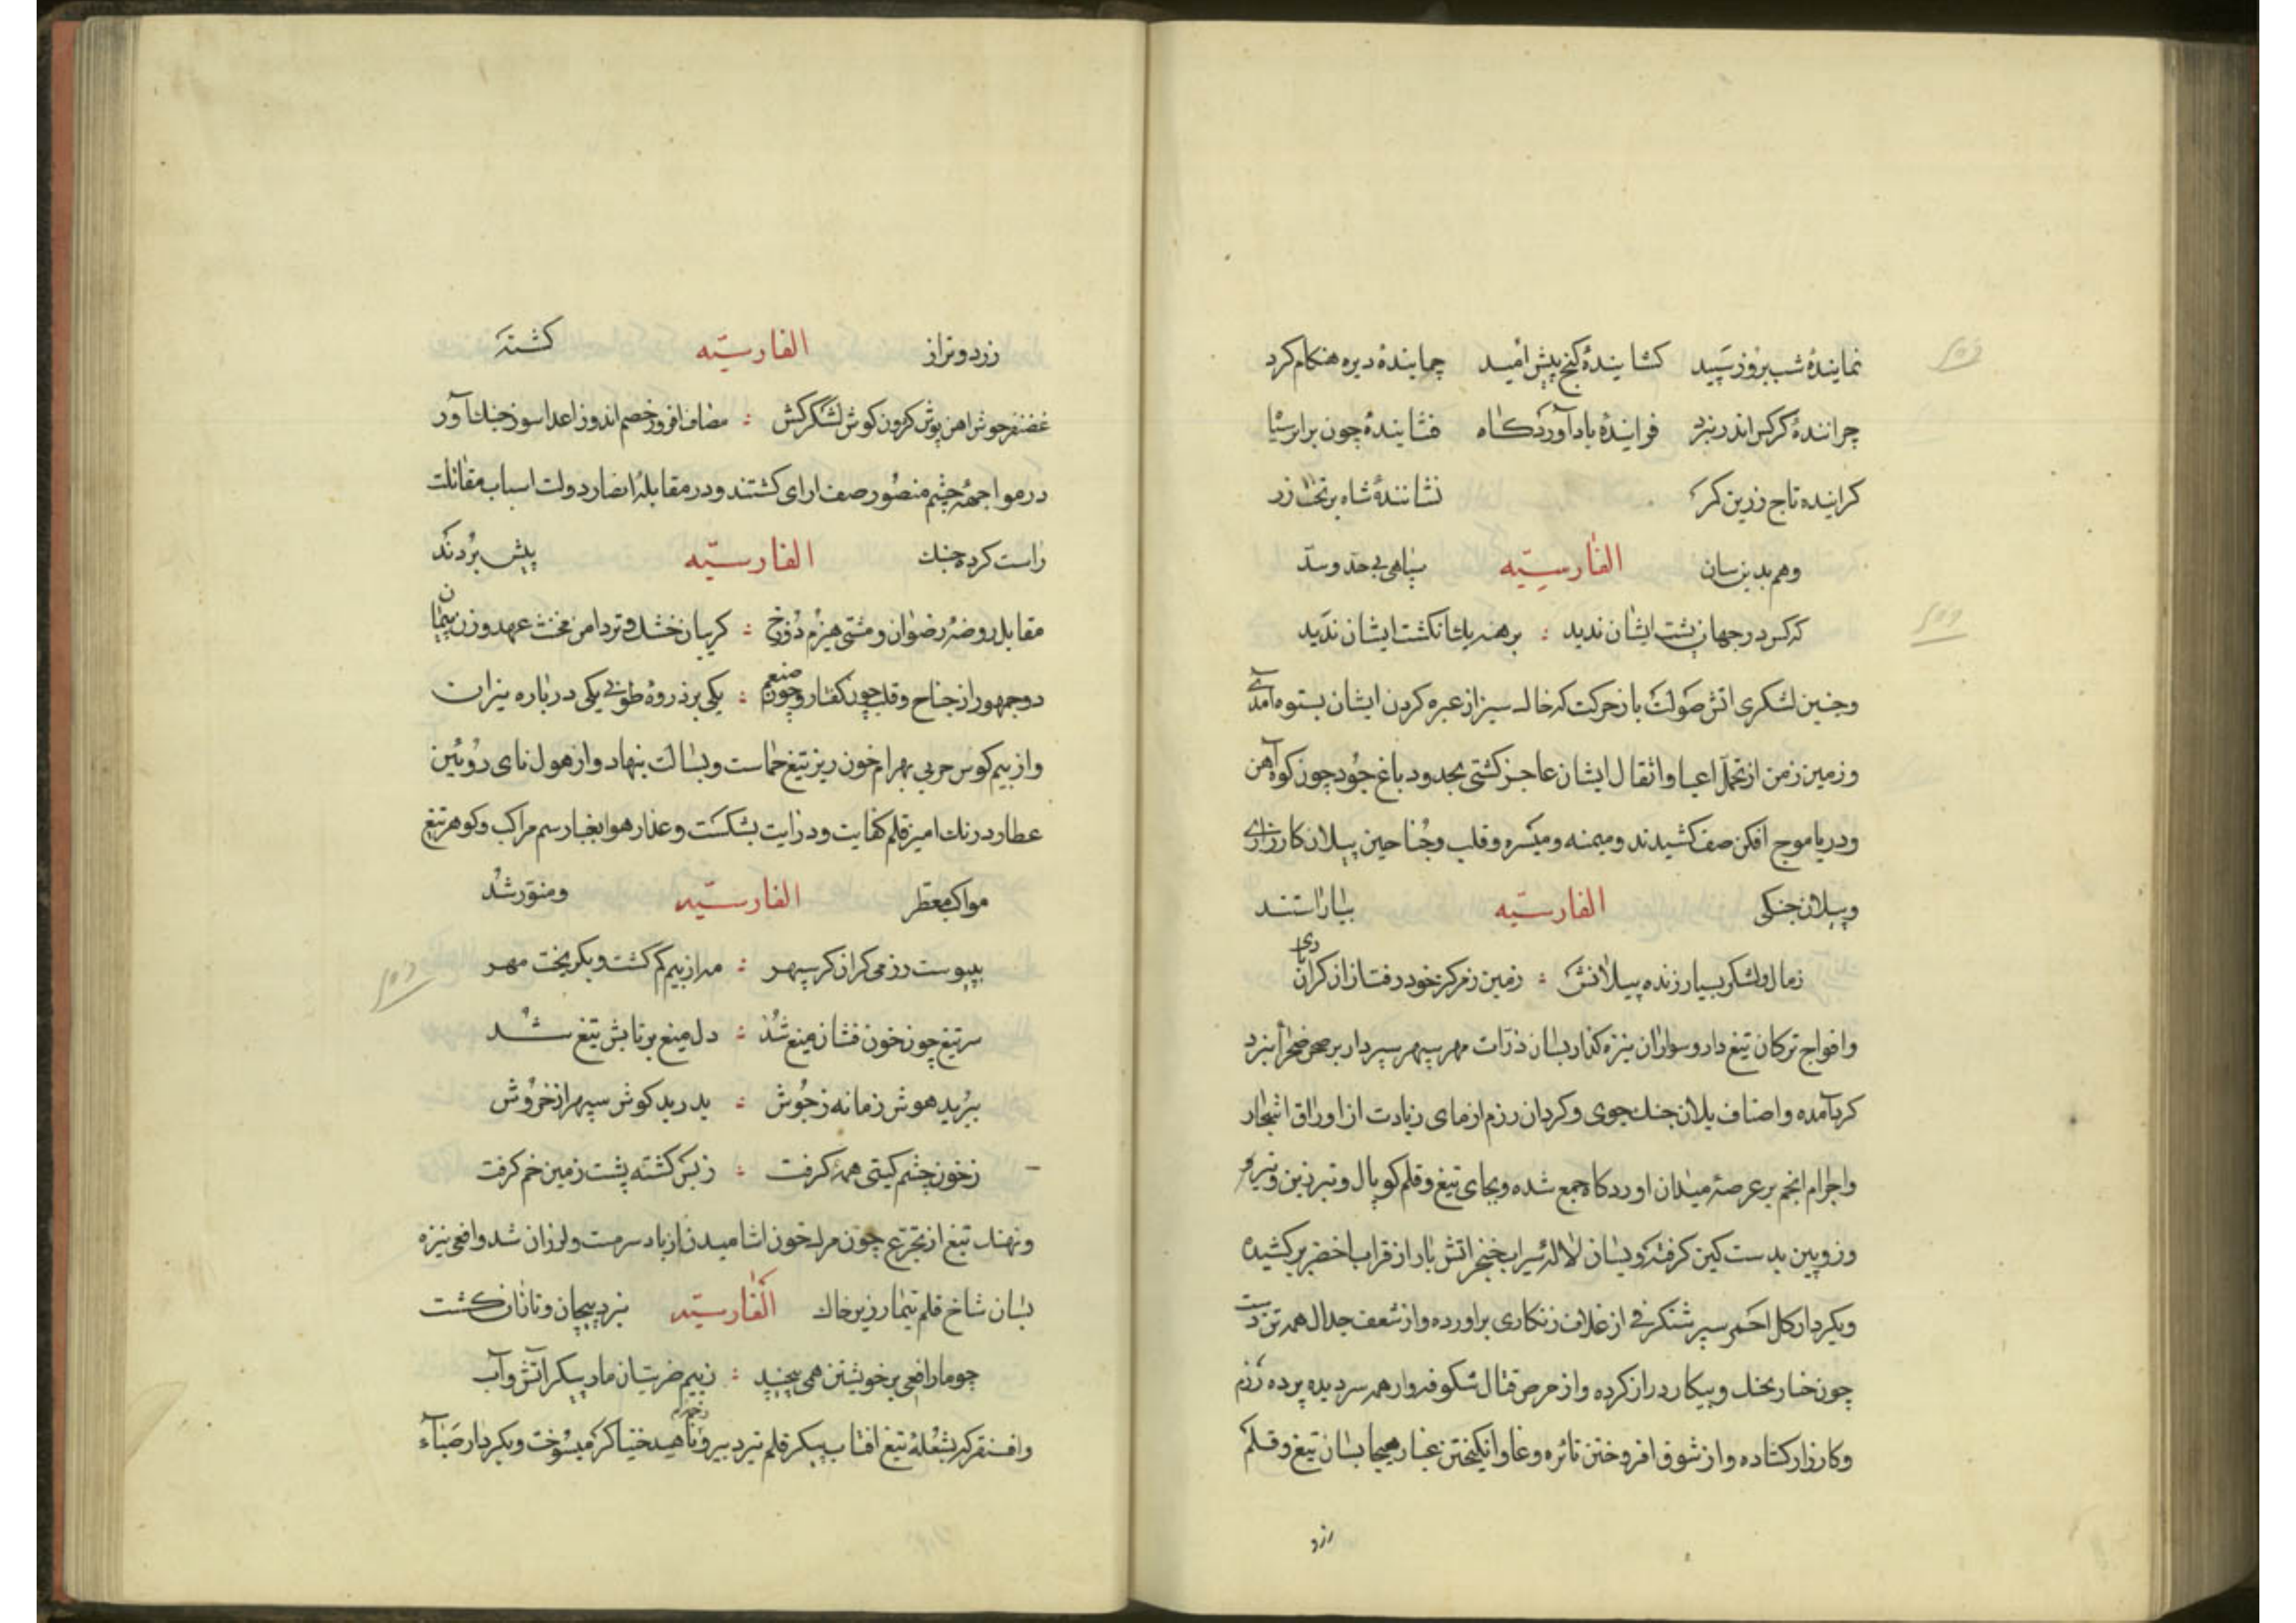 نمایندهٔ شب بروز سپید کشایندهٔ کنج پیش امید چمایندهٔ دیره هنکام کرد
چرانندهٔ کرکس اندر نبرد فزایندهٔ باد آوردکاه فشایندهٔ خون بر ابر سیاه
کراینده تاج زرین کمر نشانندهٔ شاه بر تخت زر
وهم بدین سان الفارسیّه سپاهی بی حد و سدّ
که کس در جهان پشت ایشان ندید : برهنه یک انکشت ایشان ندید
وچنین لشکری اتش صولت باد حرکت که خاک سیر از عبره کردن ایشان بستوه آمدی
وزمین زمن از تحمل اعبا واثقال ایشان عاجز کشتی بحدود باغ جود چون کوه آهن
ودریا موج افکن صف کشیدند ومیمنه ومیسره وقلب وجناحین بپیلان کارزاری
وپیلان جنکی الفارسیّه بیاراستند
زمال ولشکر بسیار زنده پیلانش : زمین ز مرکز خود رفت از کران
وافواج ترکان تیغ دار وسواران نیزه کذار بسان ذرّات مهر سپهر سپردار بر صحن صحرا نبرد
کرد آمده واصناف یلان جنک جوی وکردان رزم ازمای زیادت از اوراق اشجار
واجرام انجم بر عرصهٔ میدان اوردکاه جمع شده وبجای تیغ وقلم کوپال وتبرزین وتیر و
وزوپین بدست کین کرفته وبسان لاله سیراب خنجر اتش بار از قراب اخضر برکشیده
وبکردار کل احمر سپر شنکرفی از غلاف زنکاری براورده واز شعف جدال همه تن دست
چون خار بجنک وپیکار دراز کرده واز حرص قتال شکوفه وار همه سر دیده برده رزم
وکارزار کشاده واز شوق افروختن نائره وغا وانکیختن غبار هیجا بسان تیغ وقلم
زرد
زرد وتر از الفارسیّه کشته
غضنفر جوش اهن پوش کردون کوش لشکرکش : مصاف افروز خصم اندوز اعدا سوز جنک آور
در مواجههٔ چشم منصور صف ارای کشتند ودر مقابلهٔ انصار دولت اسباب مقاتلت
راست کرده جنک الفارسیّه پیش بردند
مقابل روضهٔ رضوان ومشتی هیزم دوزخ : کریبان خشک وتر دامن مخنث عهد وزن پیمان
دو جمهور از جناح وقلب چون کفتار وچون ضیغم : یکی بر ذروهٔ طوبی یکی در باره نیران
واز بیم کوس حربی بهرام خون ریز تیغ حماست وبسالت بنهاد واز هول نای روئین
عطارد رنک امیز قلم کفایت ودرایت بشکست وعذار هوا بغبار سم مراکب وکوهر تیغ
مواکب معطّر الفارسیّه ومنوّر شد
بپیوست رزمی کران کز سپهر : مه از بیم کم کشت وبکریخت مهر
سر تیغ چون خون فشان میغ شد : دل میغ پر تابش تیغ شد
ببرید هوش زمانه ز جوش : بدرید کوش سپهر از خروش
ز خون چشم کیتی همه کرفت : ز بس کشته پشت زمین خم کرفت
ونهنک تیغ از تجرّع چون مراد خون اشامیدن از باد سرمست ولرزان شد وافعی نیزه
بسان شاخ قلم تیمار زیر خاک الفارسیّه نبرد پیچان وتازان کشت
چو مار افعی بر خویشتن همی پیچید : ز بیم ضربتشان مار پیکر آتش وآب
وافسنقر کبر بشعلهٔ تیغ افتاب پیکر قلم تیر دبیر وناهید خنیاکر میسوخت وبکردار صباء